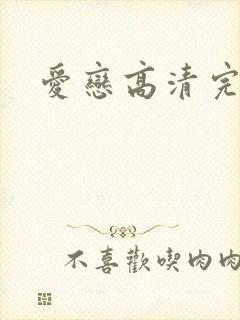 愛戀高清完
不喜歡喫肉肉